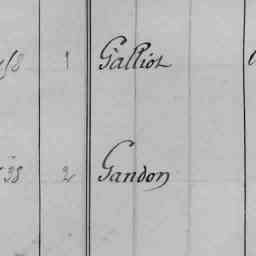 1 Galliot
38 2 Gandon